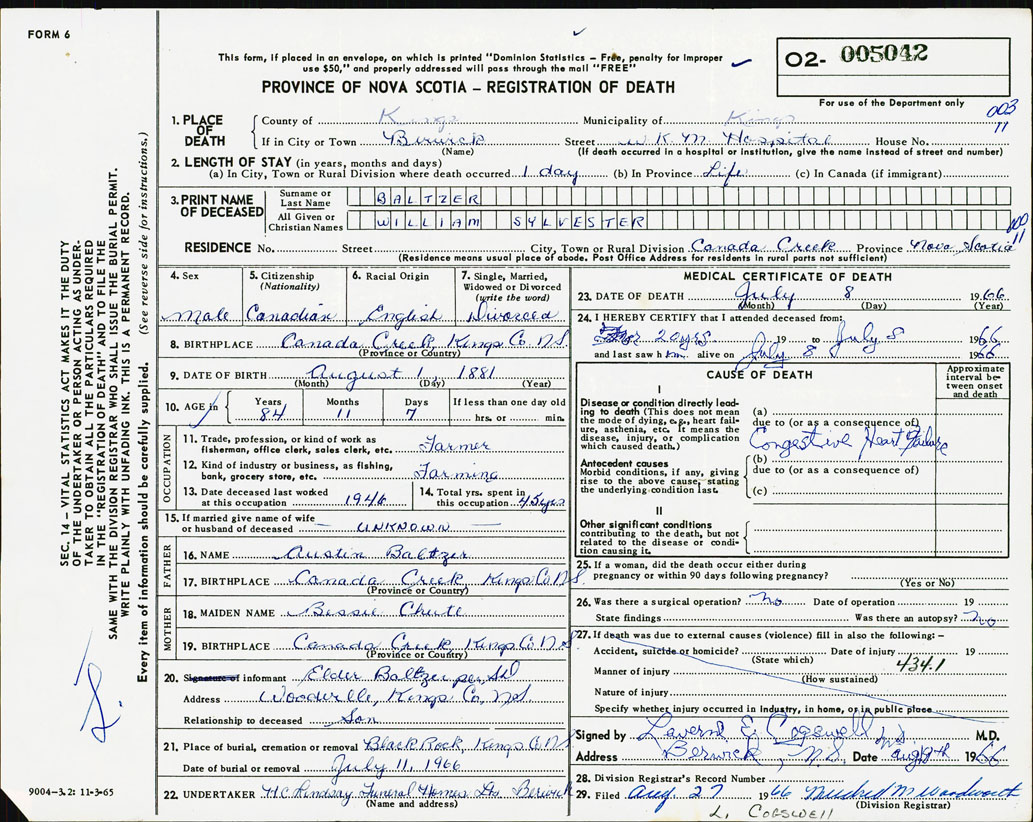 FORM 6
This form, if placed in an envelope, on which is printed "Dominion Statistics – Free, penalty for improper
use $50," and properly addressed will pass through the mail "FREE"
PROVINCE OF NOVA SCOTIA – REGISTRATION OF DEATH
02- 005042
For use of the Department only
003
11
1. PLACE OF DEATH
County of Kings Municipality of Kings
If in City or Town Berwick Street W K M Hospital House No.
(Name) (If death occurred in a hospital or institution, give the name instead of street and number)
2. LENGTH OF STAY (in years, months and days)
(a) In City, Town or Rural Division where death occurred 1 day (b) In Province Life (c) In Canada (if immigrant)
3. PRINT NAME OF DECEASED
Surname or Last Name BALTZER
All Given or Christian Names WILLIAM SYLVESTER
11
RESIDENCE No. Street City, Town or Rural Division Canada Creek Province Nova Scotia
(Residence means usual place of abode. Post Office Address for residents in rural parts not sufficient)
4. Sex
Male
5. Citizenship (Nationality)
Canadian
6. Racial Origin
English
7. Single, Married, Widowed or Divorced (write the word)
Divorced
8. BIRTHPLACE Canada Creek, Kings Co. N.S.
(Province or Country)
9. DATE OF BIRTH August 1, 1881
(Month) (Day) (Year)
10. AGE in Years Months Days If less than one day old
84 11 7 hrs. or min.
OCCUPATION
11. Trade, profession, or kind of work as fisherman, office clerk, sales clerk, etc. Farmer
12. Kind of industry or business, as fishing, bank, grocery store, etc. Farming
13. Date deceased last worked at this occupation 1946
14. Total yrs. spent in this occupation 45yrs
15. If married give name of wife or husband of deceased — UNKNOWN —
FATHER
16. NAME Austin Baltzer
17. BIRTHPLACE Canada Creek Kings Co N.S.
(Province or Country)
MOTHER
18. MAIDEN NAME Bessie Chute
19. BIRTHPLACE Canada Creek, Kings Co N S
(Province or Country)
20. Signature of informant Elder Baltzer per
Address Woodville, Kings Co, N.S
Relationship to deceased Son
21. Place of burial, cremation or removal Black Rock Kings Co N.S
Date of burial or removal July 11, 1966
22. UNDERTAKER H C Lindsay Funeral Homes Berwick
(Name and address)
MEDICAL CERTIFICATE OF DEATH
23. DATE OF DEATH July 8 1966
(Month) (Day) (Year)
24. I HEREBY CERTIFY that I attended deceased from:
2 yrs. 19 to July 8 1966
and last saw him alive on July 8 1966
CAUSE OF DEATH
Approximate interval between onset and death
I
Disease or condition directly leading to death (This does not mean the mode of dying, e.g., heart failure, asthenia, etc. It means the disease, injury, or complication which caused death.)
(a)
due to (or as a consequence of)
Congestive Heart Failure
Antecedent causes
Morbid conditions, if any, giving rise to the above cause, stating the underlying condition last.
(b)
due to (or as a consequence of)
(c)
II
Other significant conditions contributing to the death, but not related to the disease or condition causing it.
25. If a woman, did the death occur either during pregnancy or within 90 days following pregnancy?
(Yes or No)
26. Was there a surgical operation? no Date of operation 19
State findings Was there an autopsy? no
27. If death was due to external causes (violence) fill in also the following: –
Accident, suicide or homicide? Date of injury 19
(State which)
Manner of injury 434.1
(How sustained)
Nature of injury
Specify whether injury occurred in industry, in home, or in public place
Signed by Lavern E. Cogswell M.D.
Address Berwick, N.S. Date 1966
28. Division Registrar's Record Number
29. Filed Aug. 27 1966 Mildred M Woodworth
(Division Registrar)
L. COGSWELL
SEC. 14 – VITAL STATISTICS ACT MAKES IT THE DUTY
OF THE UNDERTAKER OR PERSON ACTING AS UNDER-
TAKER TO OBTAIN ALL THE PARTICULARS REQUIRED
IN THE "REGISTRATION OF DEATH" AND TO FILE THE
SAME WITH THE DIVISION REGISTRAR WHO SHALL ISSUE THE BURIAL PERMIT.
WRITE PLAINLY WITH UNFADING INK. THIS IS A PERMANENT RECORD.
Every item of information should be carefully supplied. (See reverse side for instructions.)
9004-3.2: 11-3-65